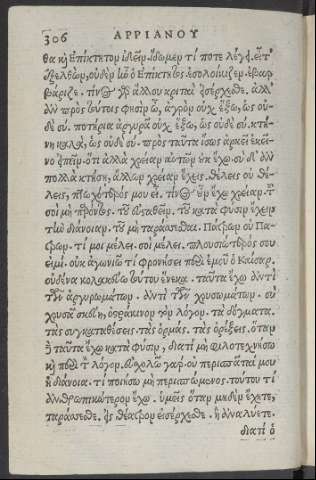 306 ΑΡΡΙΑΝΟΥ
θα καὶ ἐπίκτητον ἰδεῖν. ἴδωμεν τί ποτε λέγει. εἶτ'
ἐξελθὼν, οὐδὲν ἦν ὁ ἐπίκτητος. ἐσολοίκιζεν. ἐβαρ
βάριζε. τίνος γὸ ἄλλου κριταὶ εἰσέρχεσθε. ἀλλ'
ἂν πρὸς τούτοις φησὶν ὦ, ἀγρὸν οὐχ ἕξω, ὡς οὐ-
δὲ σύ. ποτήρια ἀργυρᾶ οὐχ ἕξω, ὡς οὐδὲ σύ. κτή-
νη καλὰ, ὡς οὐδὲ σύ. πρὸς ταῦτα ἴσως ἀρκεῖ ἐκεῖ-
νο εἰπεῖν ὅτι ἀλλὰ χρείαν αὐτῶν οὐκ ἔχω. σὺ δ' ἂν
πολλὰ κτήσῃ, ἄλλων χρείαν ἔχεις. θέλεις οὐ θέ-
λεις, πτωχότερός μου εἶ. τίνος οὖν ἔχω χρείαν. τοῦ
σοὶ μὴ παρόντος. τοῦ εὐσταθεῖν. τοῦ κατὰ φύσιν ἔχειν
τὴν διάνοιαν. τοῦ μὴ ταράττεσθαι. Πάτρων οὐ Πά-
τρων. τί μοι μέλει. σοὶ μέλει. πλουσιώτερός σου
εἰμί. οὐκ ἀγωνιῶ τί φρονήσει περὶ ἐμοῦ ὁ Καῖσαρ.
οὐδένα κολακεύω τούτου ἕνεκα. ταῦτα ἔχω ἀντὶ
τῶν ἀργυρωμάτων. ἀντὶ τῶν χρυσωμάτων. σὺ
χρυσᾶ σκεύη, ὀστράκινον τὸν λόγον. τὰ δόγματα.
τὰς συγκαταθέσεις. τὰς ὁρμὰς. τὰς ὀρέξεις. ὅταν
δὲ ταῦτα ἔχω κατὰ φύσιν, διατί μὴ φιλοτεχνήσω
καὶ περὶ τὸν λόγον. εὐσχολῶ γάρ. οὐ περισπᾶταί μου
ἡ διάνοια. τί ποιήσω μὴ περισπώμενος. τούτου τί
ἀνθρωπικώτερον ἔχω. ὑμεῖς ὅταν μηδὲν ἔχετε,
ταράσσεσθε. εἰς θέατρον εἰσέρχεσθε. ἢ ἀναλύετε.
διατί ὁ